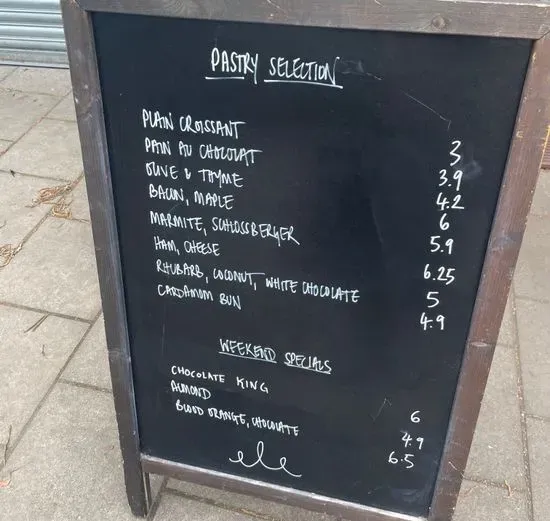 PASTRY SELECTION
PLAIN CROISSANT 3
PAIN AU CHOCOLAT 3.9
OLIVE & THYME 4.2
BACON, MAPLE 6
MARMITE, SCHLOSSBERGER 5.9
HAM, CHEESE 6.25
RHUBARB, COCONUT, WHITE CHOCOLATE 5
CARDAMOM BUN 4.9
WEEKEND SPECIALS
CHOCOLATE KING 6
ALMOND 4.9
BLOOD ORANGE, CHOCOLATE 6.5
ele